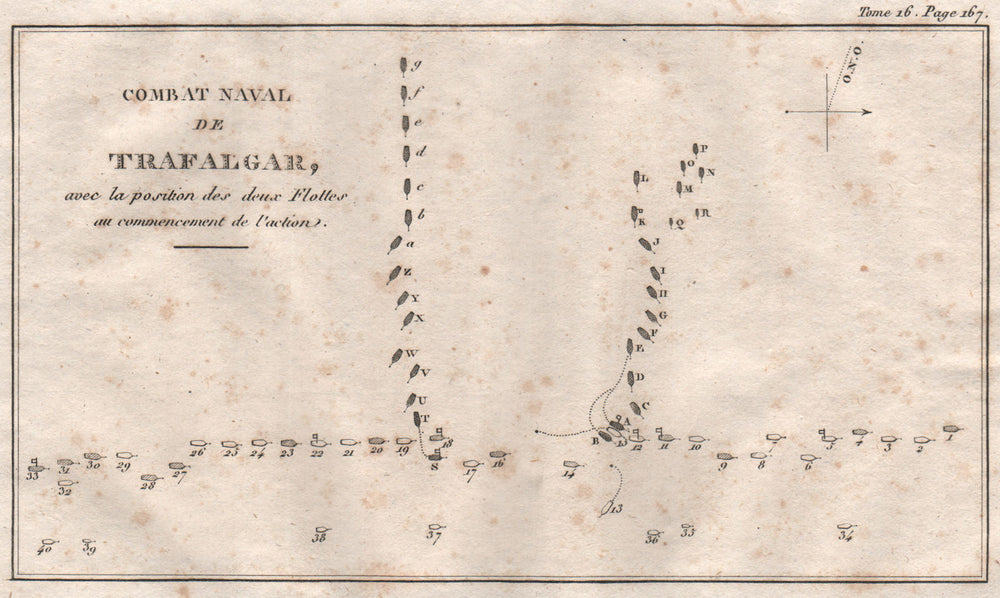 Tome 16. Page 167.
COMBAT NAVAL
DE
TRAFALGAR,
avec la position des deux Flottes
au commencement de l'action.
O.N.O.
g
f
e
d
c
b
a
Z
Y
X
W
V
U
T
S
P
O
N
L
M
K
Q
R
J
I
H
G
F
E
D
C
A
B
13
33
31
30
29
32
28
27
26
25
24
23
22
21
20
19
18
17
16
14
12
11
10
9
8
7
6
5
4
3
2
1
13
40
39
38
37
36
35
34